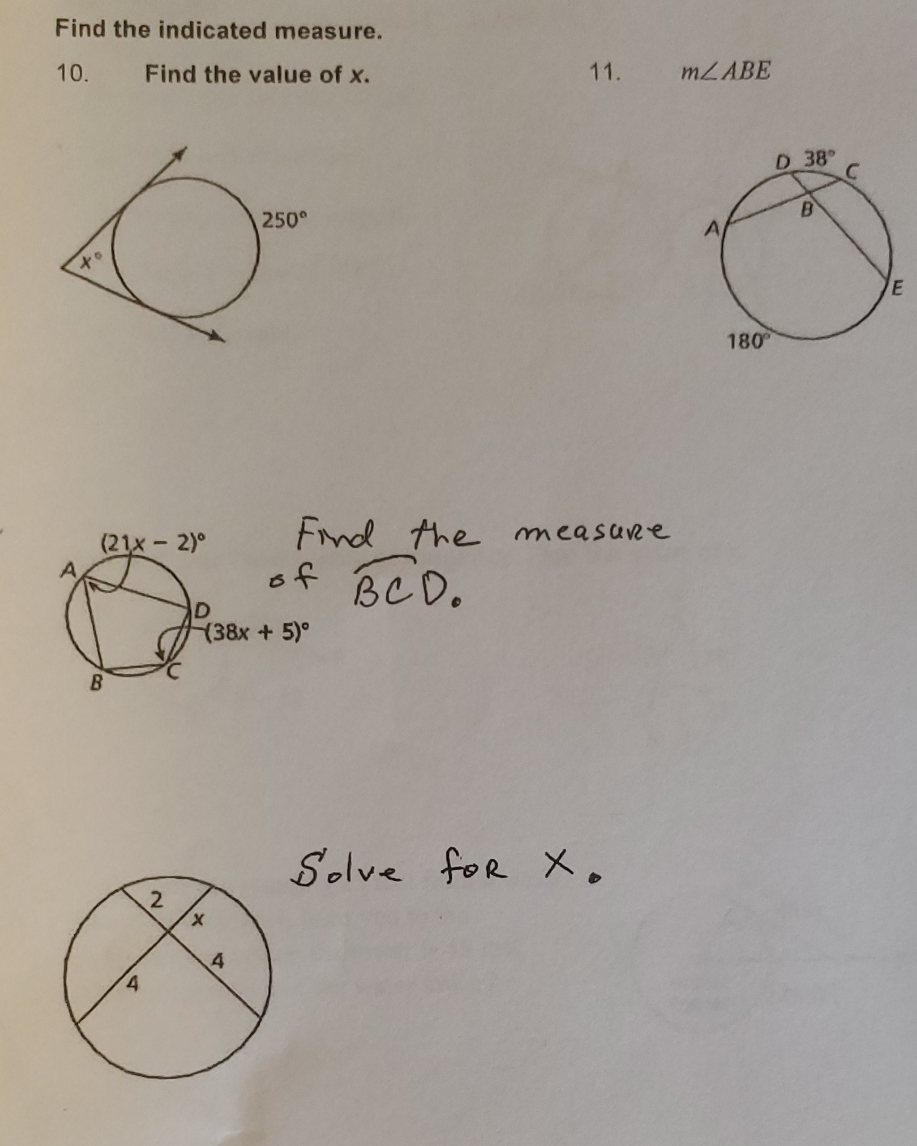 Find the indicated measure.
10. Find the value of x.
11. m∠ABE
250°
x°
D 38° C
B
A
E
180°
(21x − 2)°
A
D
(38x + 5)°
C
B
Find the measure
of BCD.
Solve for x.
2
x
4
4